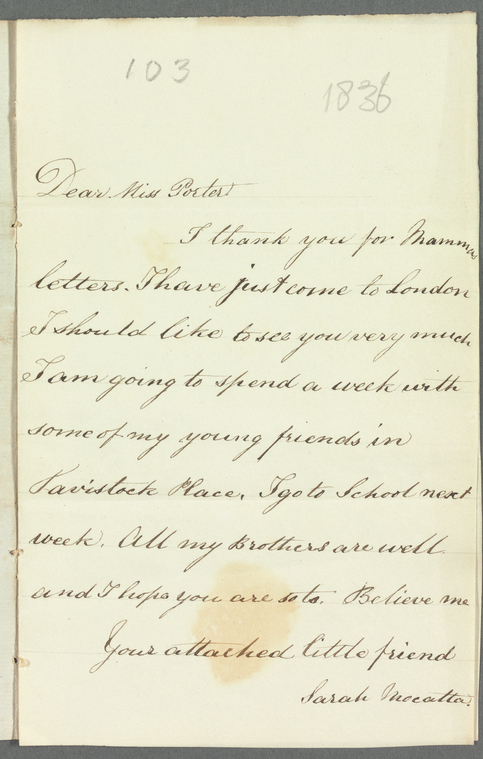 103
1836
Dear Miss Porter
I thank you for Mammas
letters. I have just come to London
I should like to see you very much
I am going to spend a week with
some of my young friends in
Tavistock Place. I go to School next
week. All my Brothers are well
and I hope you are so to. Believe me
Your attached little friend
Sarah Mocatta.